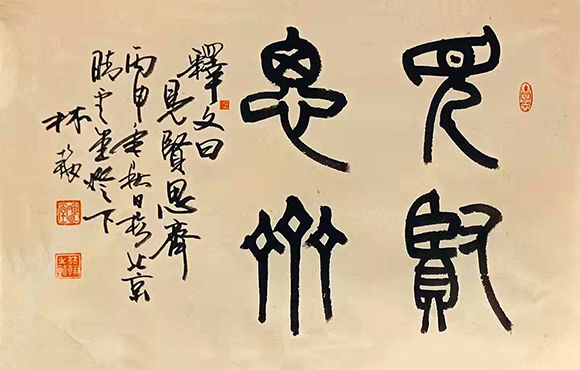 見賢
思齊
釋文曰
見賢思齊
丙申年秋日於北京
晴雲堂燈下
林